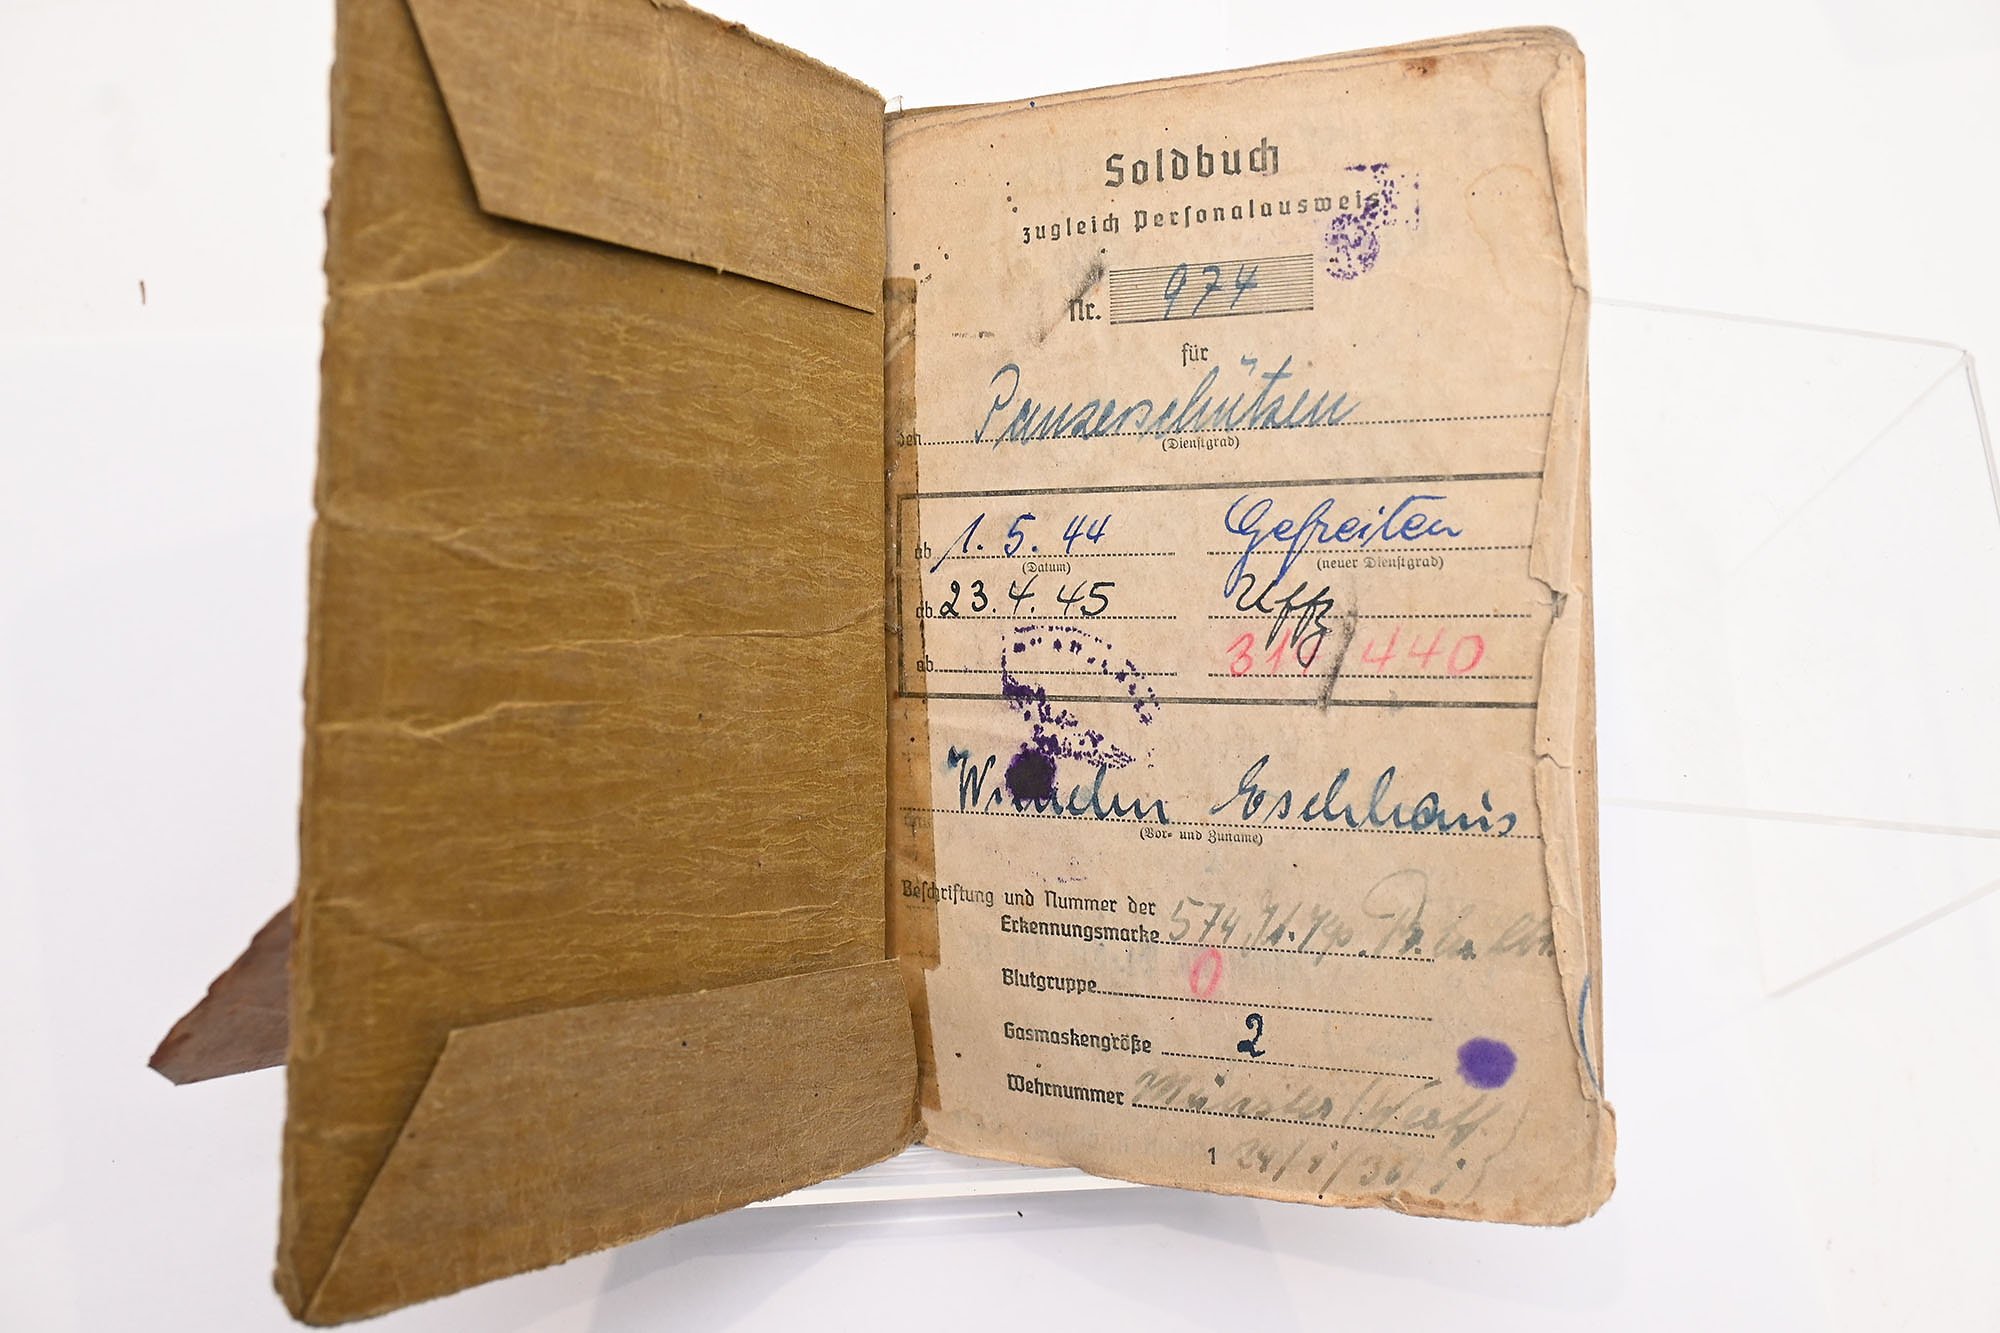 Soldbuch
zugleich Personalausweis
Nr. 974
für
den Panzerschützen
(Dienstgrad)
ab 1. 5. 44 Gefreiten
(Datum) (neuer Dienstgrad)
ab 23. 4. 45 Uffz
ab 440
Wilhelm Eschhaus
(Vor- und Zuname)
Beschriftung und Nummer der
Erkennungsmarke 574
Blutgruppe 0
Gasmaskengröße 2
Wehrnummer Münster (Westf.)
1